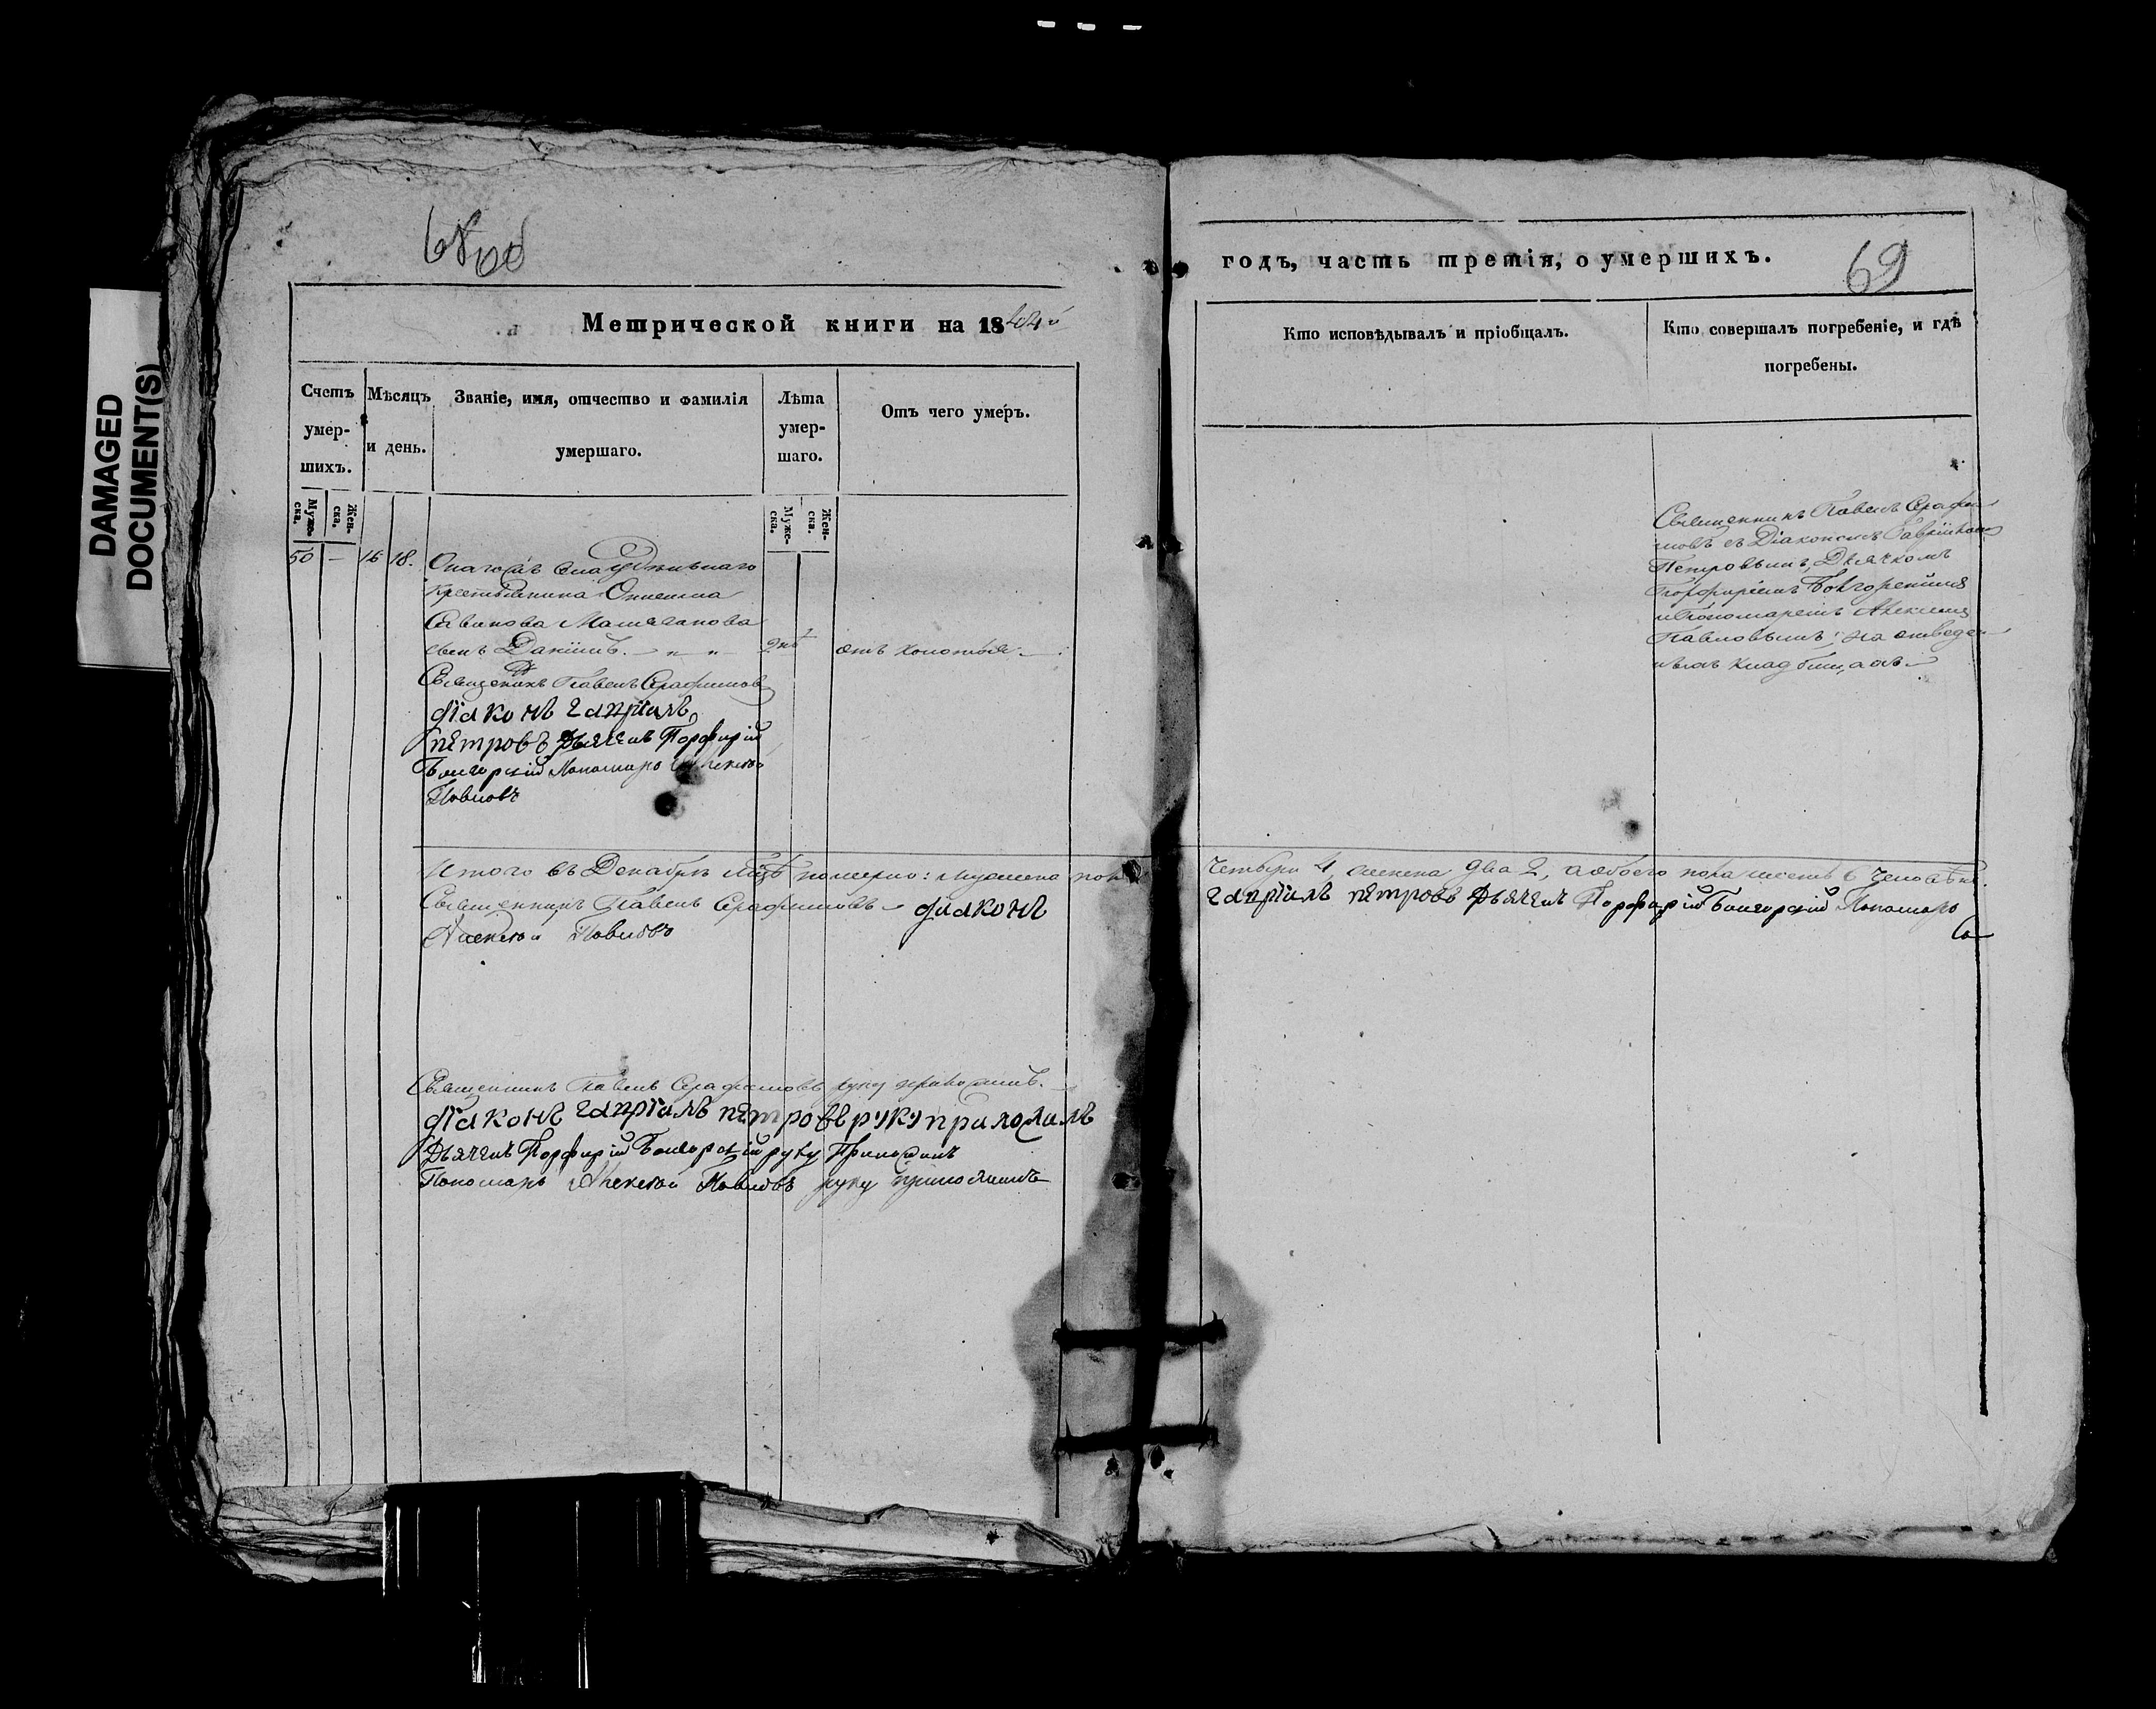 DAMAGED
DOCUMENT(S)
Метрической книги на 18
годъ, часть третія, о умершихъ.
69
Счетъ умершихъ.
Мѣсяцъ и день.
Званіе, имя, отчество и фамилія умершаго.
Лѣта умершаго.
Отъ чего умеръ.
Кто исповѣдывалъ и пріобщалъ.
Кто совершалъ погребеніе, и гдѣ погребены.
Мужеска.
Женска.
Мужеска.
Женска.
50 — 16 18.
крестьянина
Савинова
сынъ Даніилъ.
Священникъ Павелъ Серафимовъ
діаконъ гавріилъ
петровъ Дьячекъ Порфирій
Пономарь Алексѣй
Павловъ
Священникъ Павелъ Серафи-
мовъ съ Діакономъ Гавріиломъ
Петровымъ, Дьячкомъ
Порфиріемъ
и Пономаремъ Алексѣемъ
Павловымъ; на отведен-
номъ кладбищѣ
Итого въ Декабрѣ померло: мужеска пола четыри 4, женска два 2, а обоего пола шесть 6 человѣкъ.
Священникъ Павелъ Серафимовъ діаконъ гавріилъ петровъ Дьячекъ Порфирій Пономарь
Алексѣй Павловъ
Священникъ Павелъ Серафимовъ руку приложилъ.
діаконъ гавріилъ петровъ руку приложилъ
Дьячекъ Порфирій руку Приложилъ
Пономарь Алексѣй Павловъ руку приложилъ